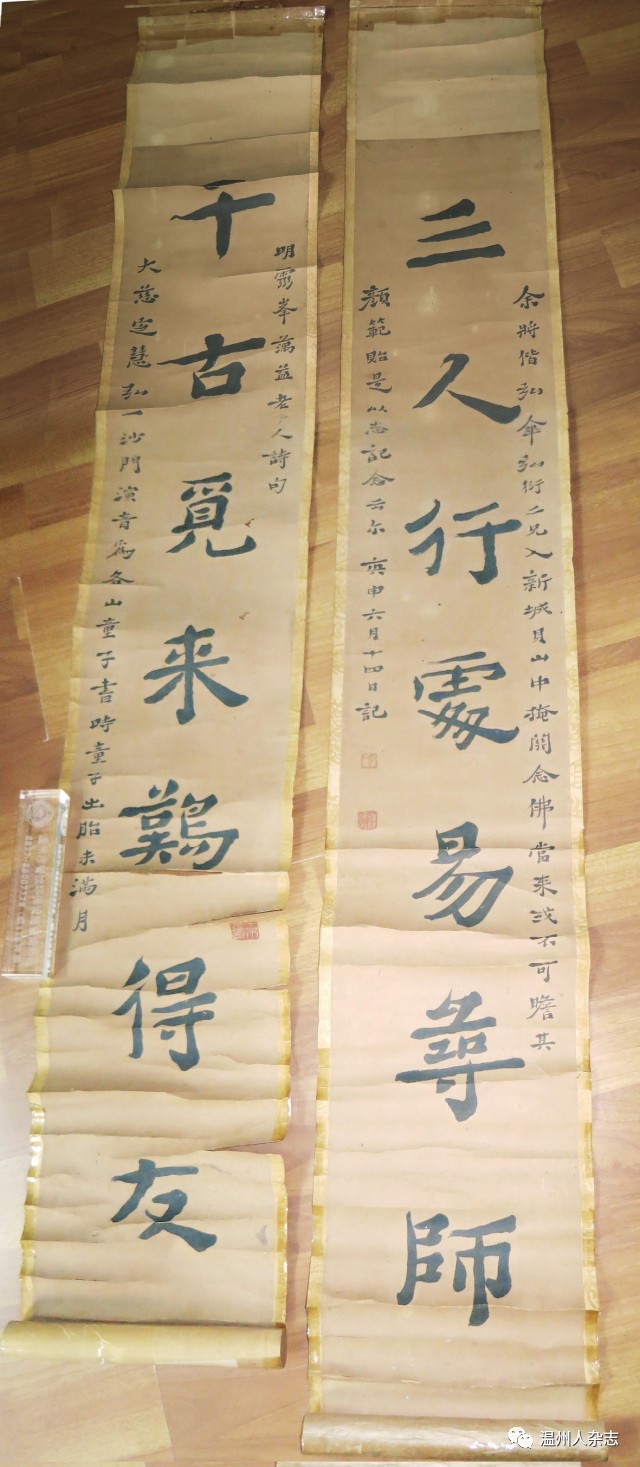 三人行處易尋師
余將偕弘傘弘衍二兄入新城貝山中掩關念佛當来或不可瞻其
顏範貽是以志記念云尔 庚申六月十四日記
千古覓来難得友
明靈峯蕅益老人詩句
大慈定慧弘一沙門演音爲各山童子書時童子出胎未滿月
温州人杂志